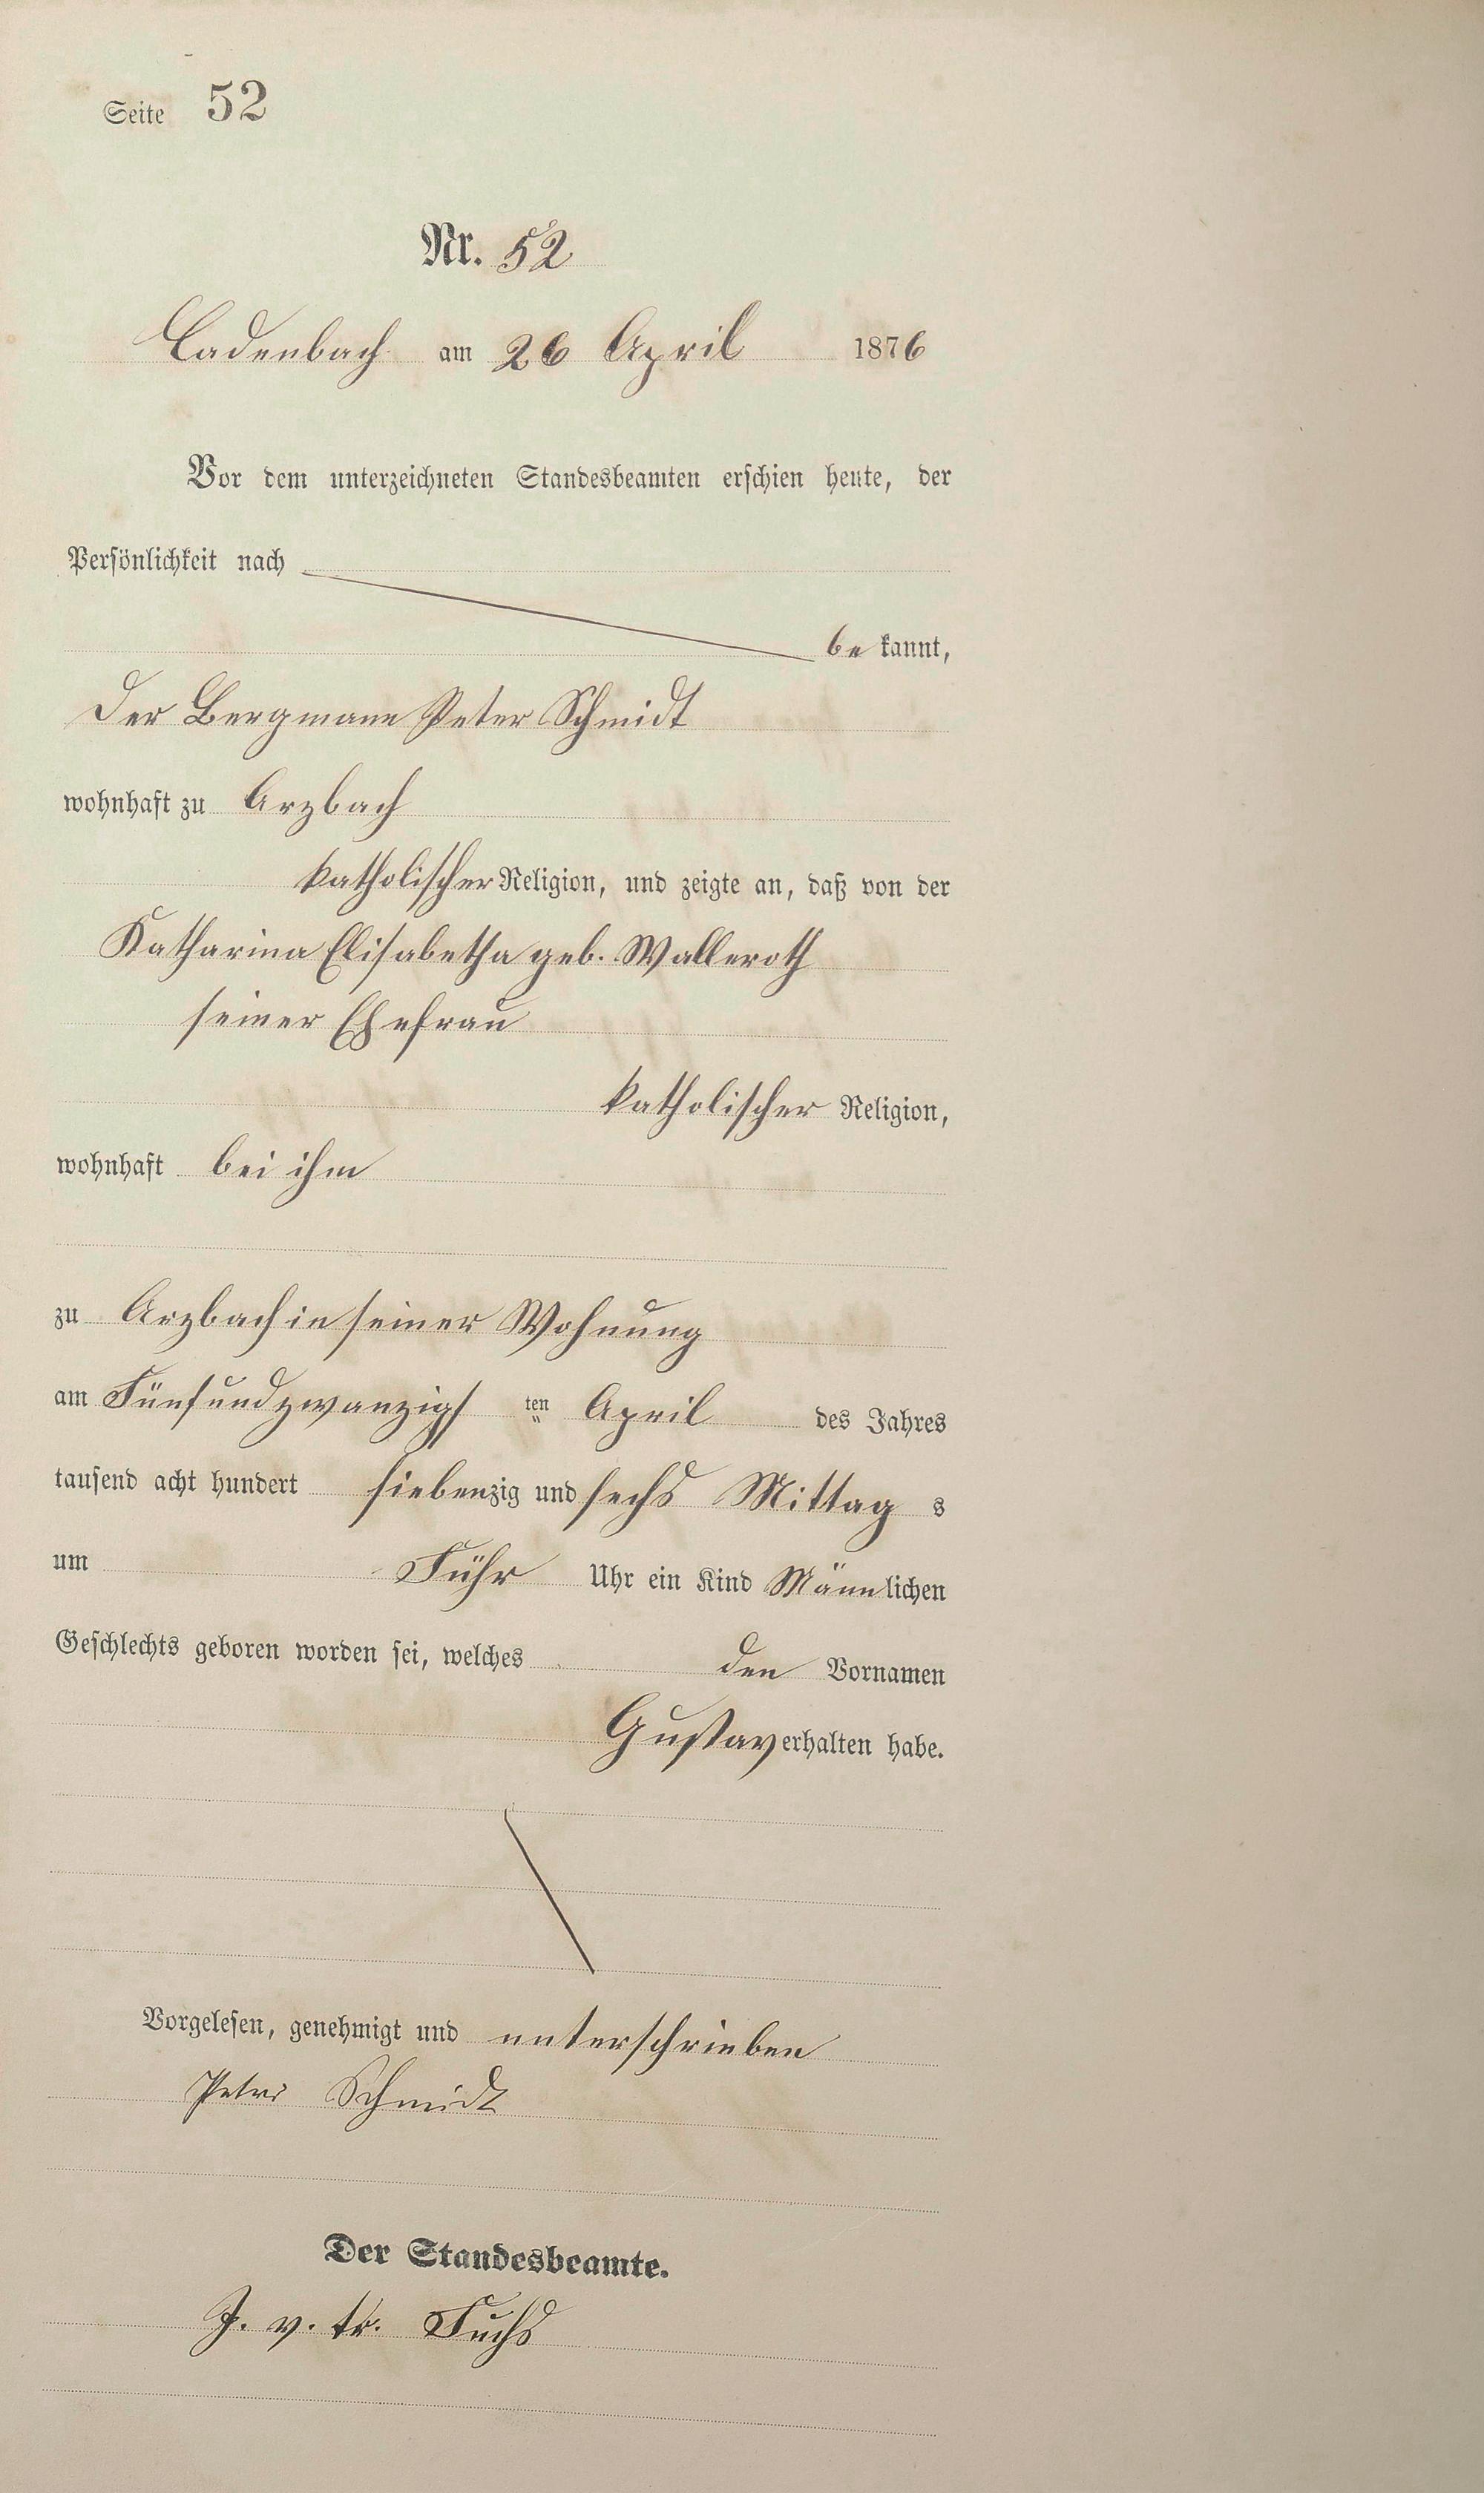 Seite 52
Nr. 52
Cadenbach am 26 April 1876
Vor dem unterzeichneten Standesbeamten erschien heute, der
Persönlichkeit nach
be kannt,
Der Bergmann Peter Schmidt
wohnhaft zu Arzbach
katholischer Religion, und zeigte an, daß von der
Katharina Elisabetha geb. Walleroth
seiner Ehefrau
katholischer Religion,
wohnhaft bei ihm
zu Arzbach in seiner Wohnung
am Fünfundzwanzigs ten April des Jahres
tausend acht hundert siebenzig und sechs Mittag s
um Uhr ein Kind Männlichen
Geschlechts geboren worden sei, welches den Vornamen
Gustav erhalten habe.
Vorgelesen, genehmigt und unterschrieben
Peter Schmidt
Der Standesbeamte.
J. v. tr. Fuchs